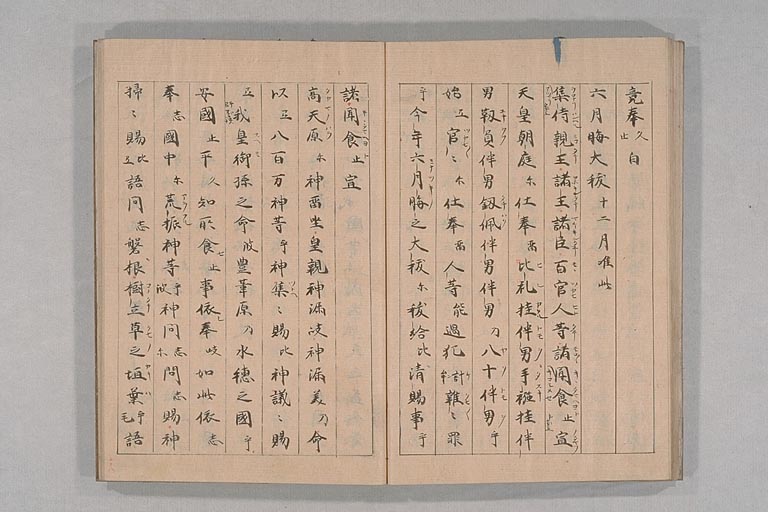 竟奉久止白
六月晦大祓十二月准此
集侍親王諸王諸臣百官人等諸聞食止宣
天皇朝庭尓仕奉留比礼挂伴男手襁挂伴
男靱負伴男釼佩伴男伴男乃八十伴男乎
始弖官々尓仕奉留人等能過犯計牟雜々罪
乎今年六月晦之大祓尓祓給比清賜事乎
諸聞食止宣
高天原尓神留坐皇親神漏岐神漏美乃命
以弖八百万神等乎神集々賜比神議々賜
弖我皇御孫之命波豊葦原乃水穂之國乎
安國止平久知所食止事依奉岐如此依志
奉志國中尓荒振神等乎波神問尓問志賜神
掃々賜比弖語問志磐根樹立草之垣葉乎毛語